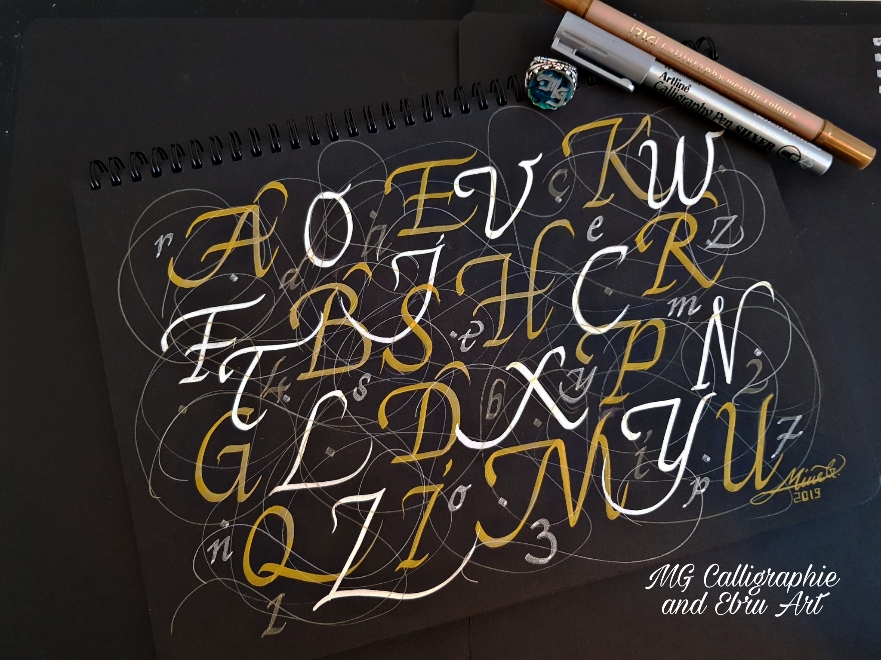 Artline
Calligraphy Pen SILVER
Calligraphy metallic colours
A O E V K W
r h ç e z
d J H C R
F B S e m N
T 4 s b X y P 2
G L D Y U 7
i p
Q Z I o M
n 3
1
Mine G
2019
MG Calligraphie
and Ebru Art